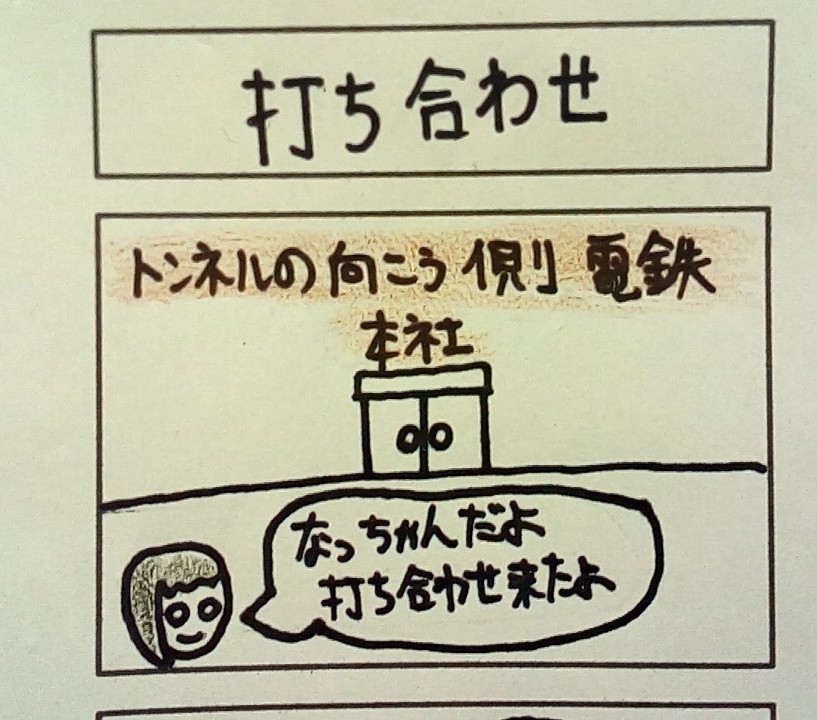 打ち合わせ
トンネルの向こう側電鉄
本社
なっちゃんだよ
打ち合わせ来たよ